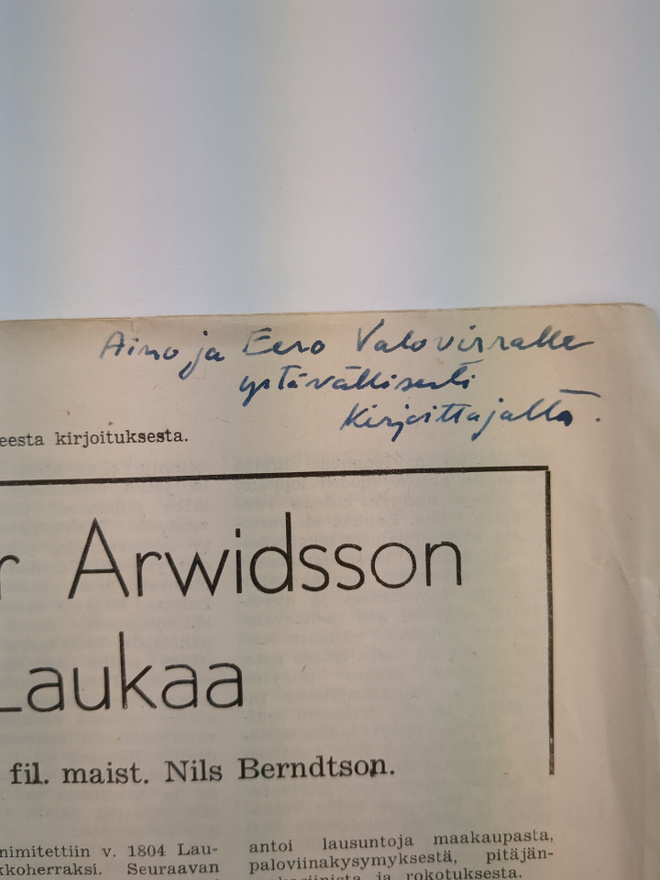 Aino ja Eero Valovirralle
ystävällisesti
Kirjoittajalta.
eesta kirjoituksesta.
r Arwidsson
Laukaa
fil. maist. Nils Berndtson.
nimitettiin v. 1804 Lau-
kkoherraksi. Seuraavan
antoi lausuntoja maakaupasta,
paloviinakysymyksestä, pitäjän-
ja rokotuksesta.